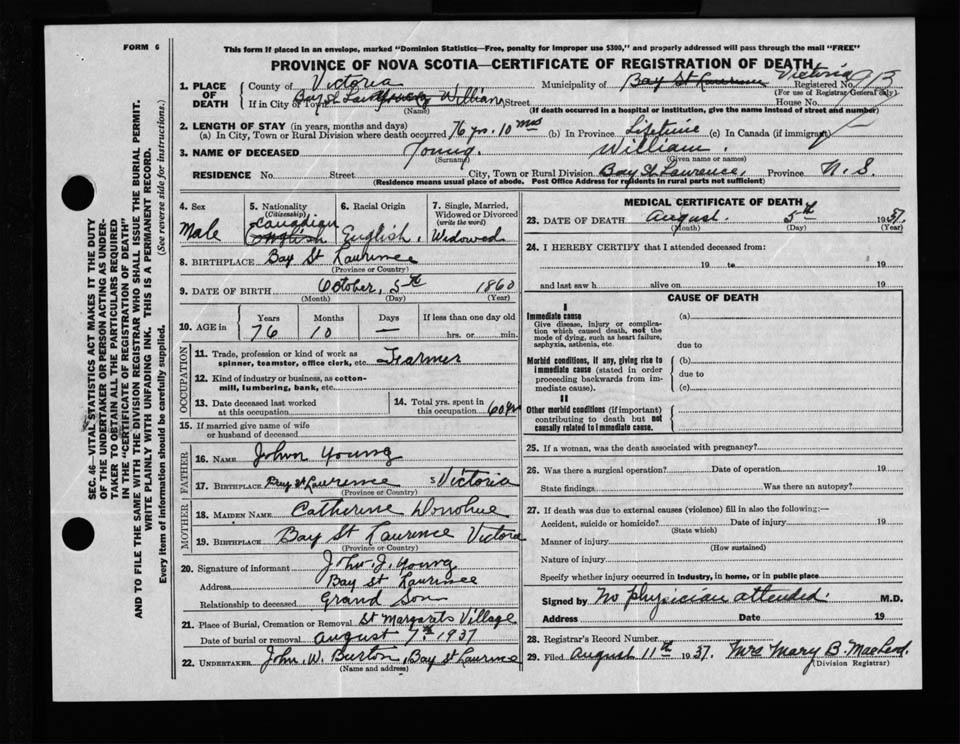 FORM 6
This form if placed in an envelope, marked "Dominion Statistics—Free, penalty for improper use $300," and properly addressed will pass through the mail "FREE"
PROVINCE OF NOVA SCOTIA—CERTIFICATE OF REGISTRATION OF DEATH
1. PLACE OF DEATH
County of Victoria Municipality of Bay St Lawrence Victoria Registered No.
(For use of Registrar General only)
If in City or Town Bay St Lawrence Young William Street House No.
(Name) (If death occurred in a hospital or institution, give the name instead of street and number)
2. LENGTH OF STAY (in years, months and days)
(a) In City, Town or Rural Division where death occurred 76 yrs. 10 mos (b) In Province Lifetime (c) In Canada (if immigrant)
3. NAME OF DECEASED Young. William.
(Surname) (Given name or names)
RESIDENCE No. Street City, Town or Rural Division Bay St Lawrence, Province N.S.
(Residence means usual place of abode. Post Office Address for residents in rural parts not sufficient)
4. Sex Male
5. Nationality (Citizenship) Canadian English
6. Racial Origin English.
7. Single, Married, Widowed or Divorced (write the word) Widowed
8. BIRTHPLACE Bay St Lawrence
(Province or Country)
9. DATE OF BIRTH October, 5th 1860
(Month) (Day) (Year)
10. AGE in Years 76 Months 10 Days — If less than one day old hrs. or min.
OCCUPATION
11. Trade, profession or kind of work as spinner, teamster, office clerk, etc. Farmer
12. Kind of industry or business, as cotton-mill, lumbering, bank, etc.
13. Date deceased last worked at this occupation
14. Total yrs. spent in this occupation 60 yrs
15. If married give name of wife or husband of deceased
FATHER
16. NAME John Young
17. BIRTHPLACE Bay St Lawrence Victoria
(Province or Country)
MOTHER
18. MAIDEN NAME Catherine Donohue
19. BIRTHPLACE Bay St Lawrence Victoria
(Province or Country)
20. Signature of informant John J. Young
Address Bay St Lawrence
Relationship to deceased Grand Son
21. Place of Burial, Cremation or Removal St Margarets Village
Date of burial or removal August 7th 1937
22. UNDERTAKER John W. Burton, Bay St Lawrence
(Name and address)
MEDICAL CERTIFICATE OF DEATH
23. DATE OF DEATH August. 5th 1937.
(Month) (Day) (Year)
24. I HEREBY CERTIFY that I attended deceased from:
19 to 19
and last saw h alive on 19
CAUSE OF DEATH
I
Immediate cause
Give disease, injury or complication which caused death, not the mode of dying, such as heart failure, asphyxia, asthenia, etc.
(a)
due to
Morbid conditions, if any, giving rise to immediate cause (stated in order proceeding backwards from immediate cause).
(b)
due to
(c)
II
Other morbid conditions (if important) contributing to death but not causally related to immediate cause.
25. If a woman, was the death associated with pregnancy?
26. Was there a surgical operation? Date of operation 19
State findings Was there an autopsy?
27. If death was due to external causes (violence) fill in also the following:—
Accident, suicide or homicide? Date of injury 19
(State which)
Manner of injury
(How sustained)
Nature of injury
Specify whether injury occurred in industry, in home, or in public place
Signed by No physician attended. M.D.
Address Date 19
28. Registrar's Record Number
29. Filed August 11th 1937. Mrs Mary B. MacLeod
(Division Registrar)
SEC. 46—VITAL STATISTICS ACT MAKES IT THE DUTY
OF THE UNDERTAKER OR PERSON ACTING AS UNDER-
TAKER TO OBTAIN ALL THE PARTICULARS REQUIRED
IN THE "CERTIFICATE OF REGISTRATION OF DEATH"
AND TO FILE THE SAME WITH THE DIVISION REGISTRAR WHO SHALL ISSUE THE BURIAL PERMIT.
WRITE PLAINLY WITH UNFADING INK. THIS IS A PERMANENT RECORD.
Every item of information should be carefully supplied. (See reverse side for instructions.)